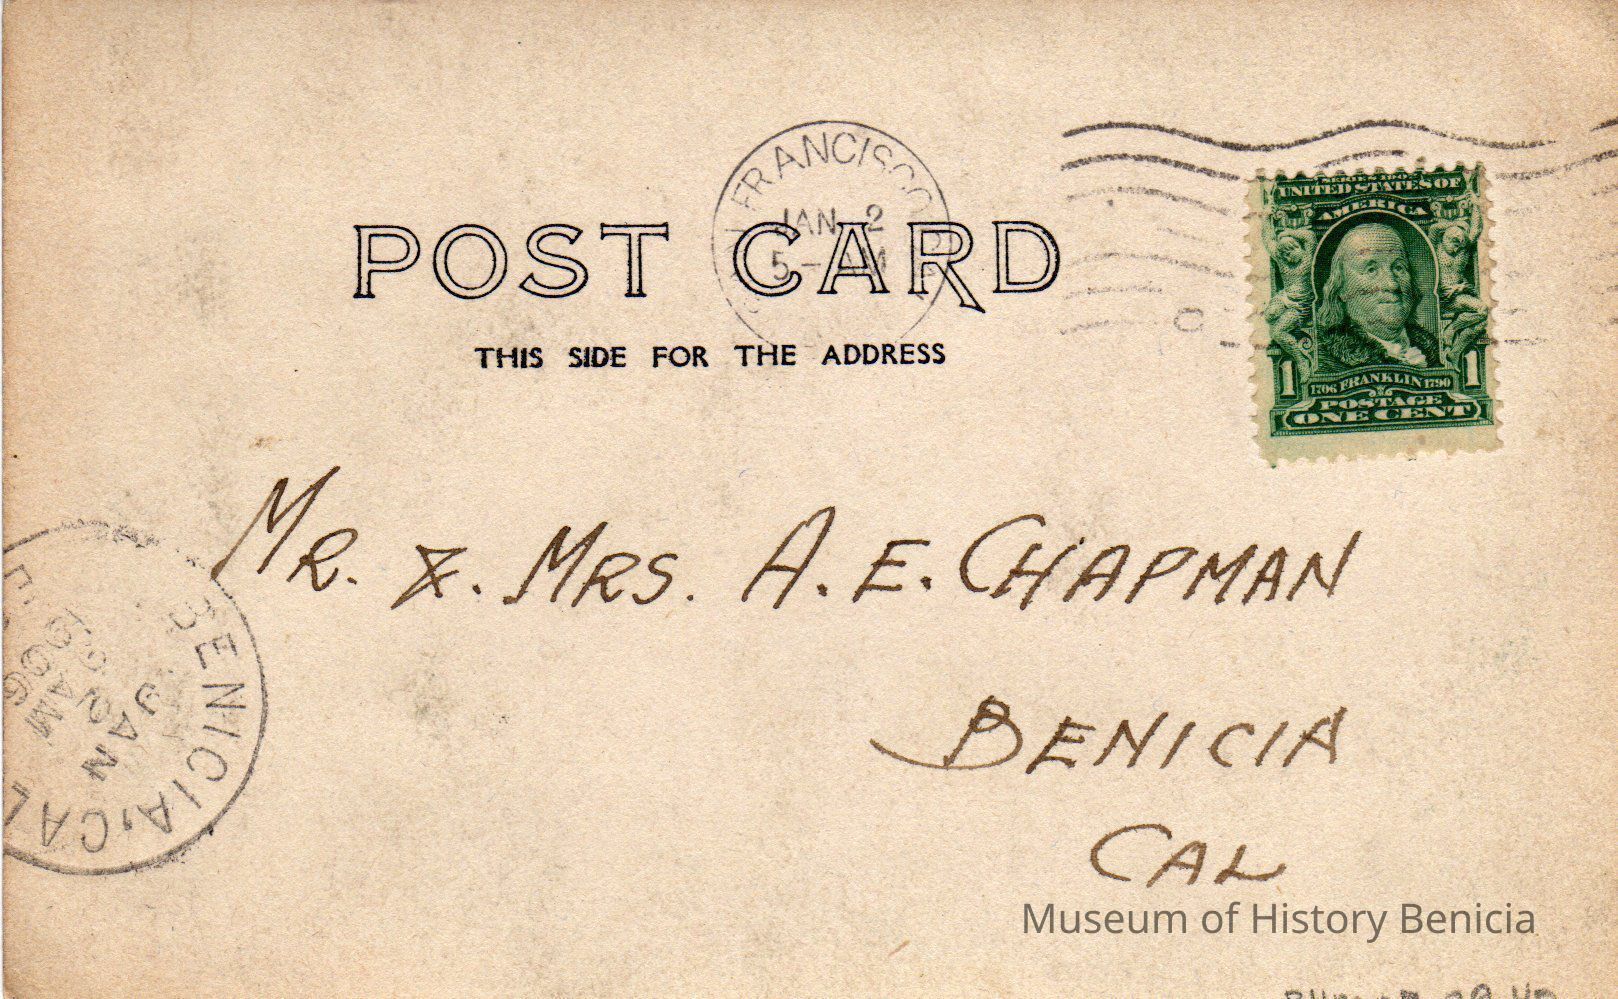 FRANCISCO
JAN 2
5-AM
POST CARD
THIS SIDE FOR THE ADDRESS
SERIES 1902
UNITED STATES OF
AMERICA
1 1706 FRANKLIN 1790 1
POSTAGE
ONE CENT
MR. & MRS. A. E. CHAPMAN
BENICIA
CAL
BENICIA, CAL
JAN
AM
1906
Museum of History Benicia